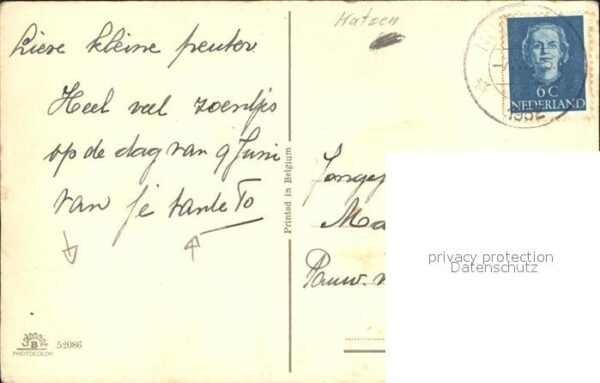 Lieve kleine peuter
Heel veel zoentjes
op de dag van 9 Juni
van je tante To
Katzen
6 C
NEDERLAND
1952
Printed in Belgium
Pauw
privacy protection
Datenschutz
Colorprint
B
PHOTOCOLOR
52086